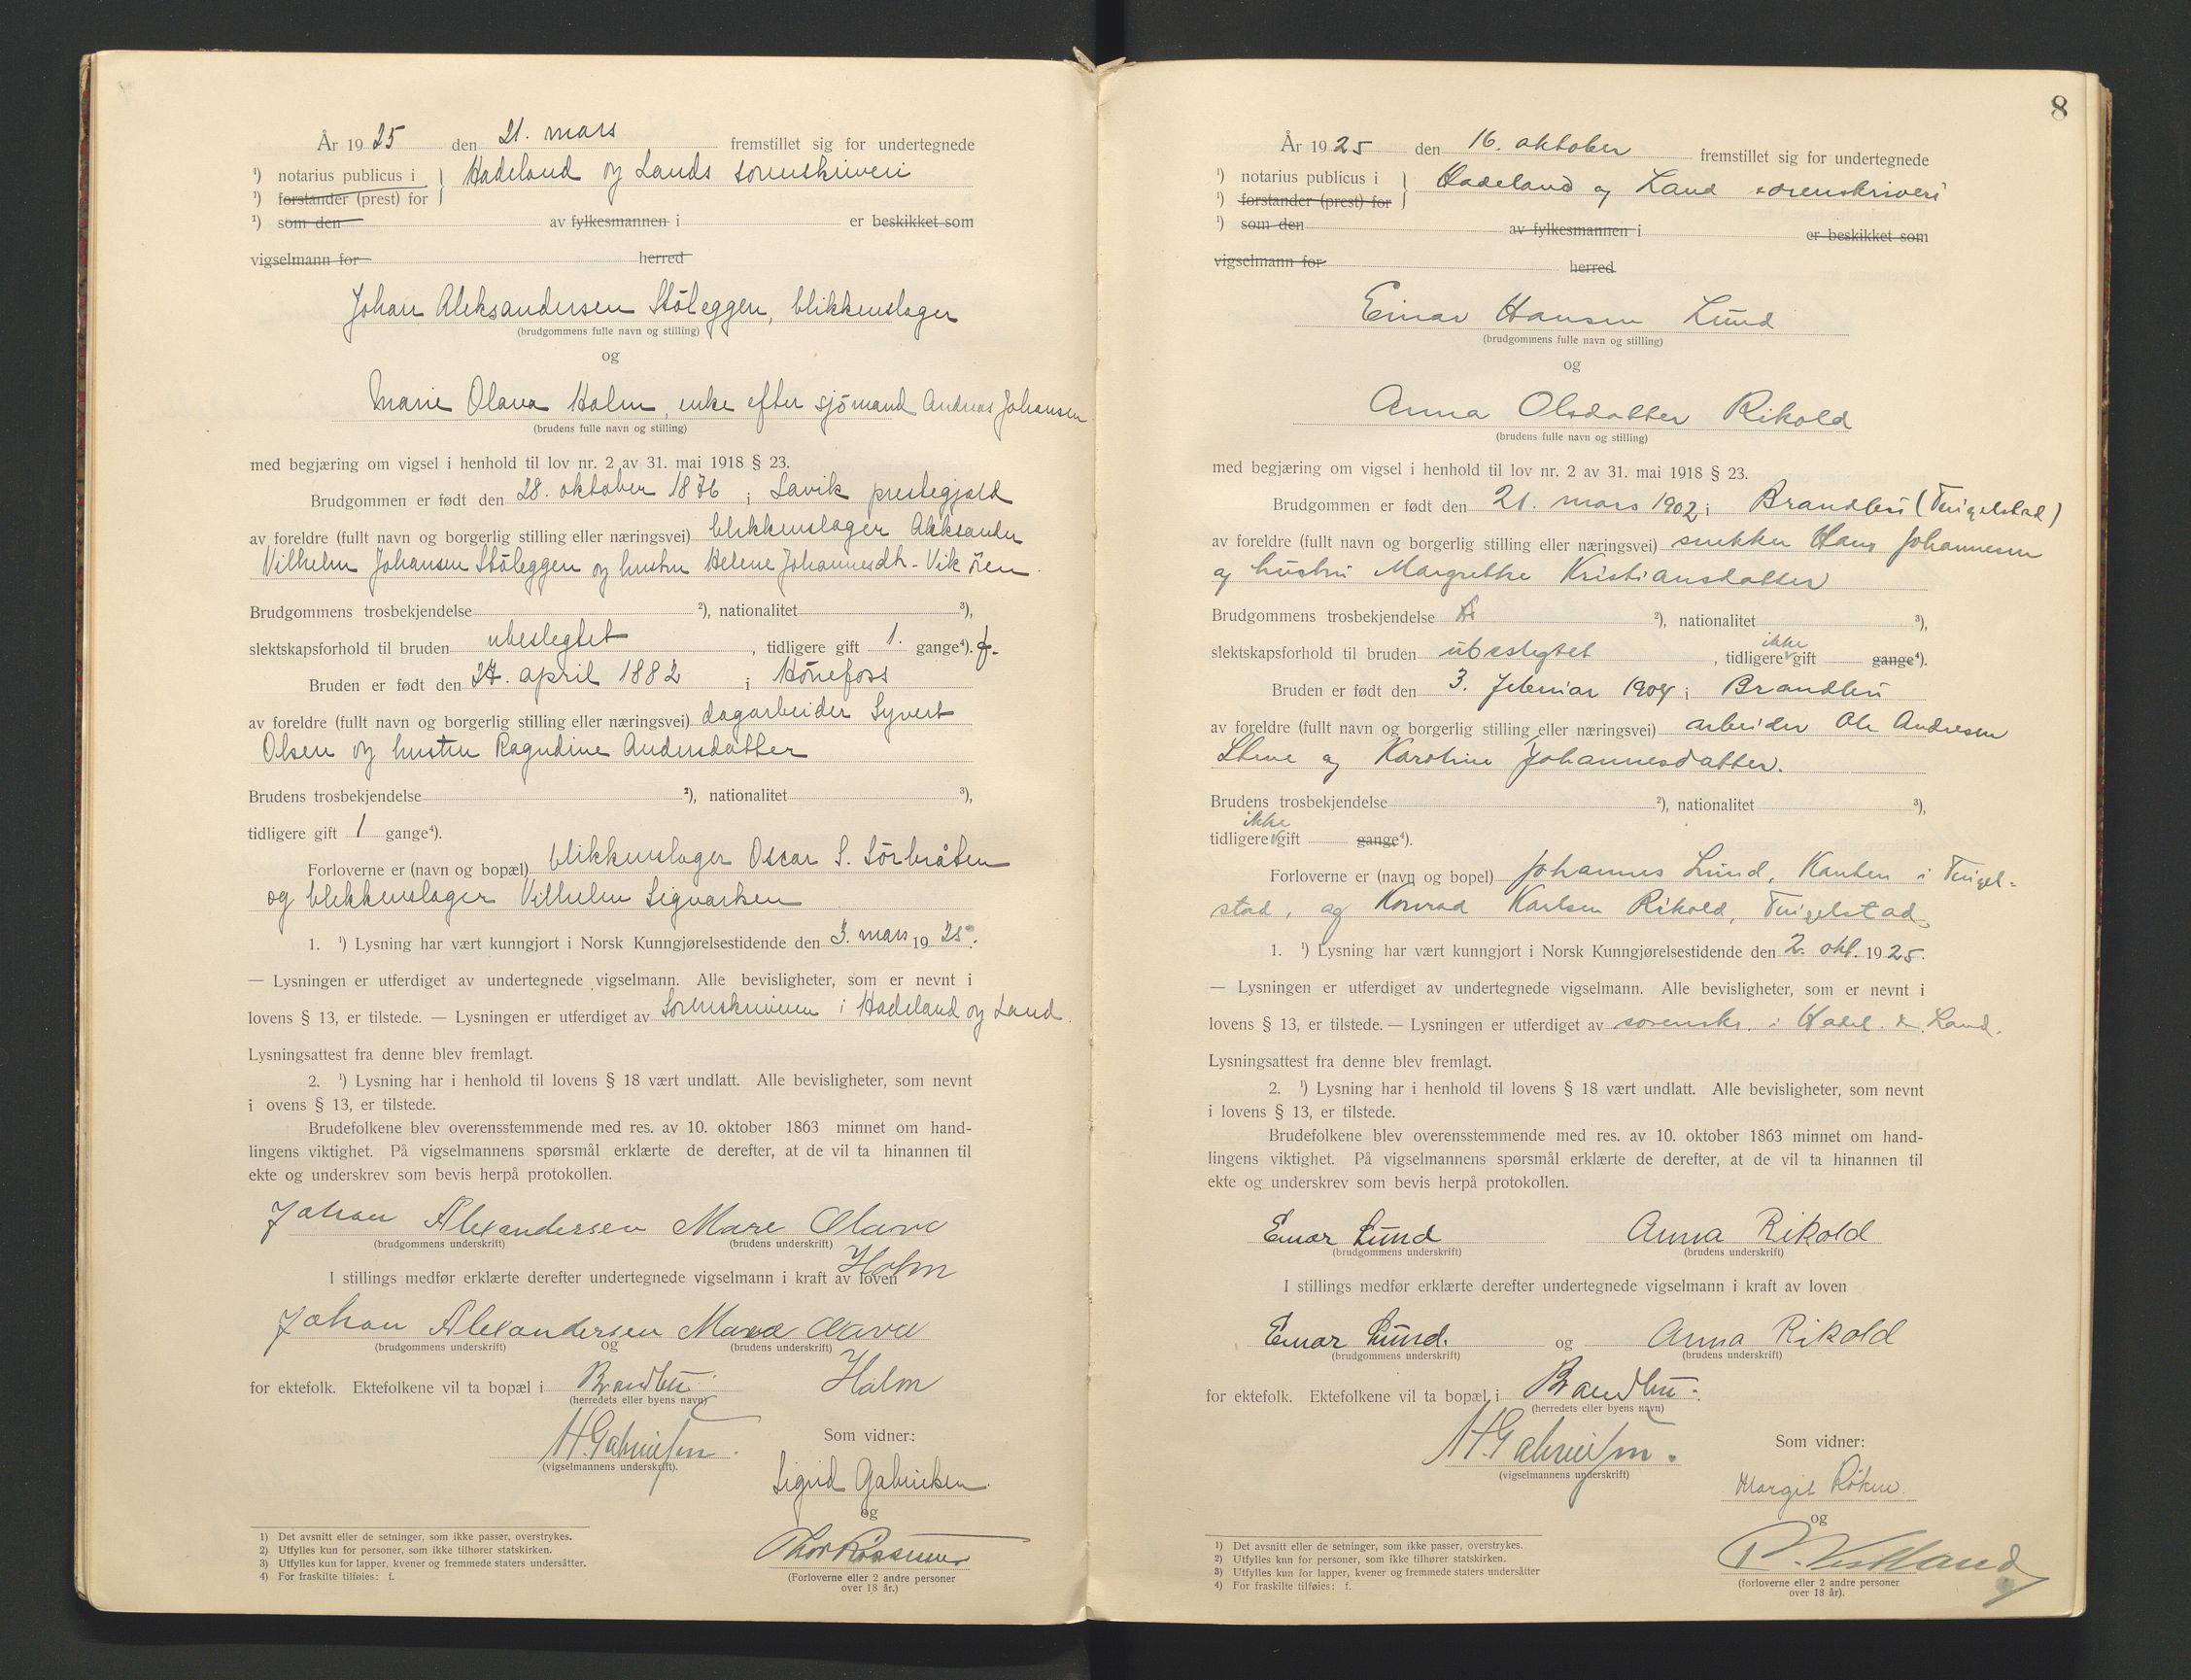 År 1925 den 21. mars fremstillet sig for undertegnede
¹) notarius publicus i } Hadeland og Lands sorenskriveri
¹) forstander (prest) for
¹) som den av fylkesmannen i er beskikket som
vigselmann for herred
Johan Aleksandersen Stöleggen, blikkenslager
(brudgommens fulle navn og stilling)
og
Marie Olava Holm, enke efter sjömand Andreas Johansen
(brudens fulle navn og stilling)
med begjæring om vigsel i henhold til lov nr. 2 av 31. mai 1918 § 23.
Brudgommen er født den 28. oktober 1876 i Lavik prestegjeld
av foreldre (fullt navn og borgerlig stilling eller næringsvei) blikkenslager Aleksander
Vilhelm Johansen Stöleggen og hustru Helene Johannesdtr. Vikören
Brudgommens trosbekjendelse ²), nationalitet ³),
slektskapsforhold til bruden ubeslegtet, tidligere gift 1. gange⁴). f.
Bruden er født den 24. april 1882 i Hönefoss
av foreldre (fullt navn og borgerlig stilling eller næringsvei) dagarbeider Syvert
Olsen og hustru Ragndine Andersdatter
Brudens trosbekjendelse ²), nationalitet ³),
tidligere gift 1 gange⁴).
Forloverne er (navn og bopæl) blikkenslager Oscar S. Sörbråten
og blikkenslager Vilhelm Sigvartsen
1. ¹) Lysning har vært kunngjort i Norsk Kunngjørelsestidende den 3. mars 1925.
— Lysningen er utferdiget av undertegnede vigselmann. Alle bevisligheter, som er nevnt i
lovens § 13, er tilstede. — Lysningen er utferdiget av Sorenskriveren i Hadeland og Land.
Lysningsattest fra denne blev fremlagt.
2. ¹) Lysning har i henhold til lovens § 18 vært undlatt. Alle bevisligheter, som nevnt
i ovens § 13, er tilstede.
Brudefolkene blev overensstemmende med res. av 10. oktober 1863 minnet om hand-
lingens viktighet. På vigselmannens spørsmål erklærte de derefter, at de vil ta hinannen til
ekte og underskrev som bevis herpå protokollen.
Johan Alexandersen Mare Olava
(brudgommens underskrift) (brudens underskrift)
Holm
I stillings medfør erklærte derefter undertegnede vigselmann i kraft av loven
Johan Alexandersen Olava
(brudgommens underskrift) og (brudens underskrift)
for ektefolk. Ektefolkene vil ta bopæl i Brandbu Holm
(herredets eller byens navn)
H. Gabrielsen.
(vigselmannens underskrift).
Som vidner:
Sigrid Gabrielsen.
og
Thor
(Forloverne eller 2 andre personer
over 18 år.)
1) Det avsnitt eller de setninger, som ikke passer, overstrykes.
2) Utfylles kun for personer, som ikke tilhører statskirken.
3) Utfylles kun for lapper, kvener og fremmede staters undersåtter.
4) For fraskilte tilføies: f.
8
År 1925 den 16. oktober fremstillet sig for undertegnede
¹) notarius publicus i } Hadeland og Land sorenskriveri
¹) forstander (prest) for
¹) som den av fylkesmannen i er beskikket som
vigselmann for herred
Einar Hansen Lund
(brudgommens fulle navn og stilling)
og
Anna Olsdatter Rikold
(brudens fulle navn og stilling)
med begjæring om vigsel i henhold til lov nr. 2 av 31. mai 1918 § 23.
Brudgommen er født den 21. mars 1902 i Brandbu (Tingelstad)
av foreldre (fullt navn og borgerlig stilling eller næringsvei) snekker Hans Johannesen
og hustru Margrethe Kristiansdatter
Brudgommens trosbekjendelse ²), nationalitet ³),
slektskapsforhold til bruden ubeslegtet, tidligere ikke gift gange⁴).
Bruden er født den 3. februar 1904 i Brandbu
av foreldre (fullt navn og borgerlig stilling eller næringsvei) arbeider Ole Andresen
Stene og Karoline Johannesdatter.
Brudens trosbekjendelse ²), nationalitet ³),
tidligere ikke gift gange⁴).
Forloverne er (navn og bopel) Johannes Lund, Kanten i Tingel-
stad, og Konrad Karlsen Rikold, Tingelstad
1. ¹) Lysning har vært kunngjort i Norsk Kunngjørelsestidende den 2. okt. 1925.
— Lysningen er utferdiget av undertegnede vigselmann. Alle bevisligheter, som er nevnt i
lovens § 13, er tilstede. — Lysningen er utferdiget av sorenskr. i Hadel. & Land.
Lysningsattest fra denne blev fremlagt.
2. ¹) Lysning har i henhold til lovens § 18 vært undlatt. Alle bevisligheter, som nevnt
i lovens § 13, er tilstede.
Brudefolkene blev overensstemmende med res. av 10. oktober 1863 minnet om hand-
lingens viktighet. På vigselmannens spørsmål erklærte de derefter, at de vil ta hinannen til
ekte og underskrev som bevis herpå protokollen.
Einar Lund Anna Rikold
(brudgommens underskrift) (brudens underskrift)
I stillings medfør erklærte derefter undertegnede vigselmann i kraft av loven
Einar Lund. og Anna Rikold
(brudgommens underskrift) (brudens underskrift)
for ektefolk. Ektefolkene vil ta bopæl i Brandbu.
(herredets eller byens navn)
H. Gabrielsen.
(vigselmannens underskrift)
Som vidner:
Margit Röken.
og
(forloverne eller 2 andre personer
over 18 år).
1) Det avsnitt eller de setninger, som ikke passer, overstrykes.
2) Utfylles kun for personer, som ikke tilhører statskirken.
3) Utfylles kun for lapper, kvener og fremmede staters undersåtter
4) For fraskilte tilføies: f.